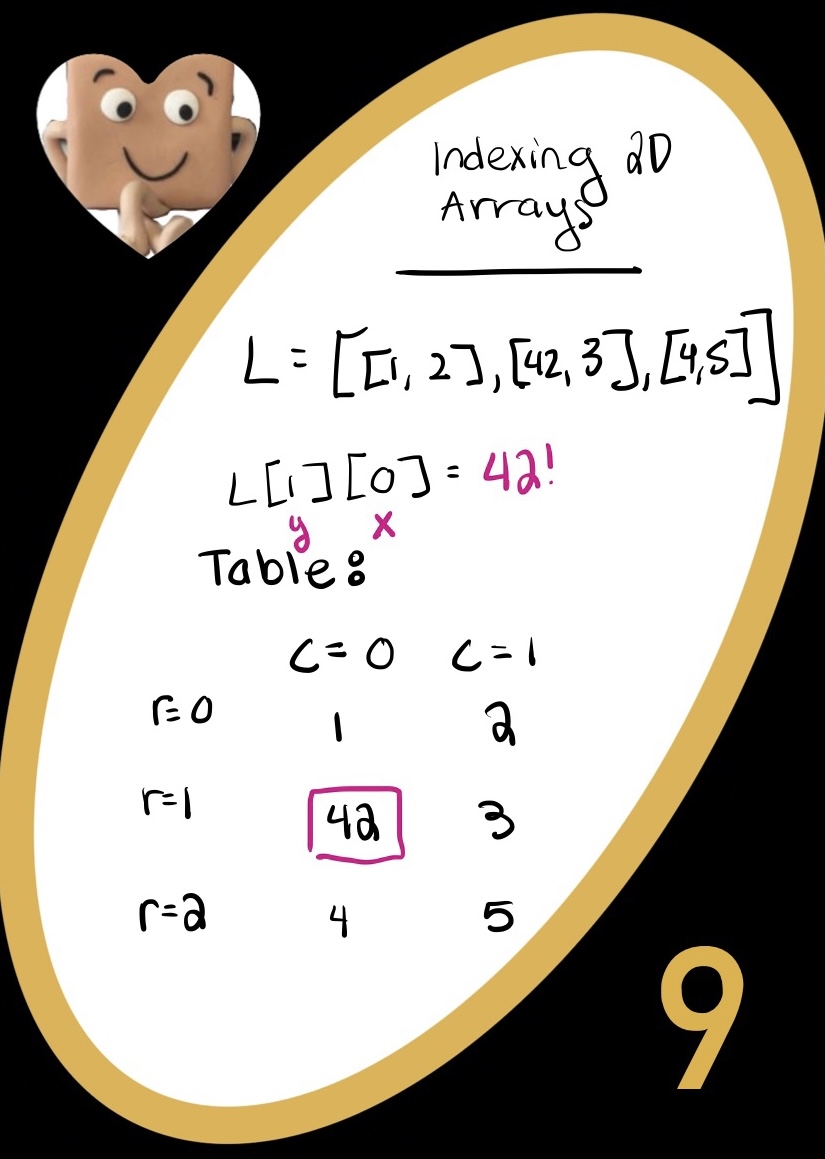 Indexing 2D
Arrays
L = [[1, 2], [42, 3], [4,5]]
L[1][0] = 42!
y x
Table:
c = 0 c = 1
r = 0 1 2
r = 1 42 3
r = 2 4 5
9